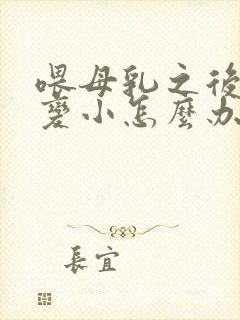 喂母乳之後
變小怎麼办
長宜